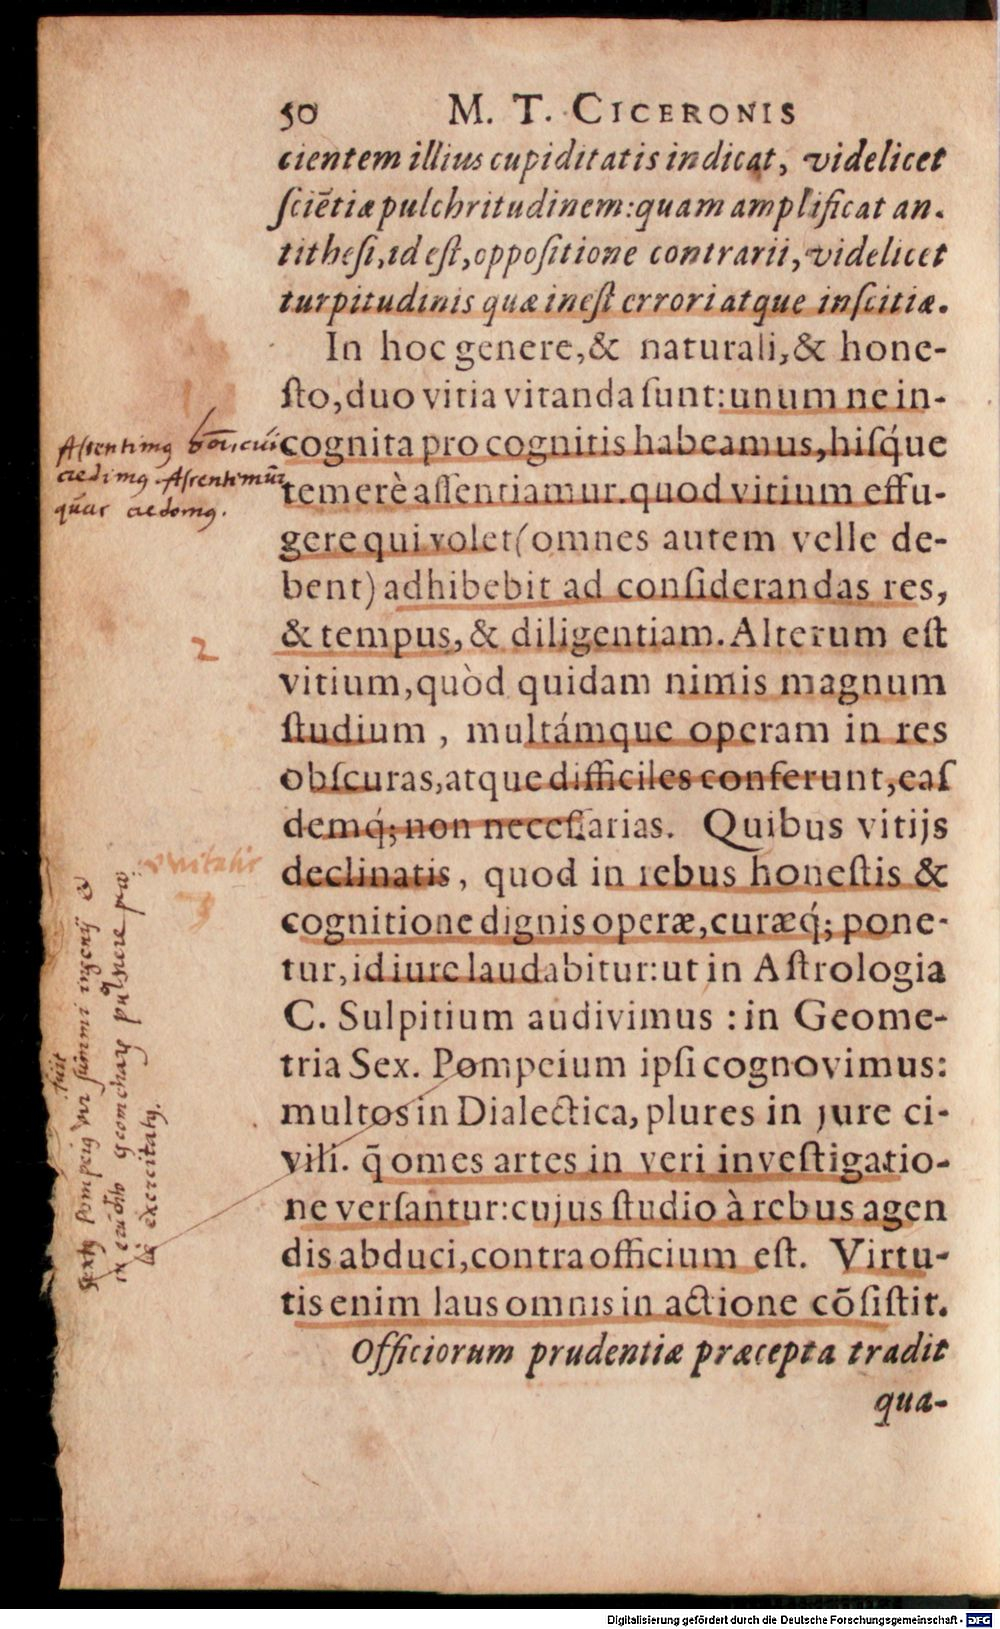 50 M. T. CICERONIS
cientem illius cupiditatis indicat, videlicet
ſciētiæ pulchritudinem: quam amplificat an-
titheſi, id eſt, oppoſitione contrarii, videlicet
turpitudinis quæ ineſt errori atque inſcitiæ.
In hoc genere, & naturali, & hone-
ſto, duo vitia vitanda ſunt: unum ne in-
cognita pro cognitis habeamus, hiſq́ue
temerè aſſentiamur. quod vitium effu-
gere qui volet (omnes autem velle de-
bent) adhibebit ad conſiderandas res,
& tempus, & diligentiam. Alterum eſt
vitium, quòd quidam nimis magnum
ſtudium, multámque operam in res
obſcuras, atque difficiles conferunt, eaſ
demq́; non neceſſarias. Quibus vitijs
declinatis, quod in rebus honeſtis &
cognitione dignis operæ, curæq́; pone-
tur, id iure laudabitur: ut in Aſtrologia
C. Sulpitium audivimus: in Geome-
tria Sex. Pompeium ipſi cognovimus:
multos in Dialectica, plures in jure ci-
vili. q̄ omēs artes in veri inveſtigatio-
ne verſantur: cujus ſtudio à rebus agen
dis abduci, contra officium eſt. Virtu-
tis enim laus omnis in actione cōſiſtit.
Officiorum prudentiæ præcepta tradit
qua-
Aſſentimq
credimq. Aſſentimūr
credomq.
2
3
fuit
Sextq Pompeiq vir ſummi ingenij &
in
exercitatq.
Digitalisierung gefördert durch die Deutsche Forschungsgemeinschaft - DFG